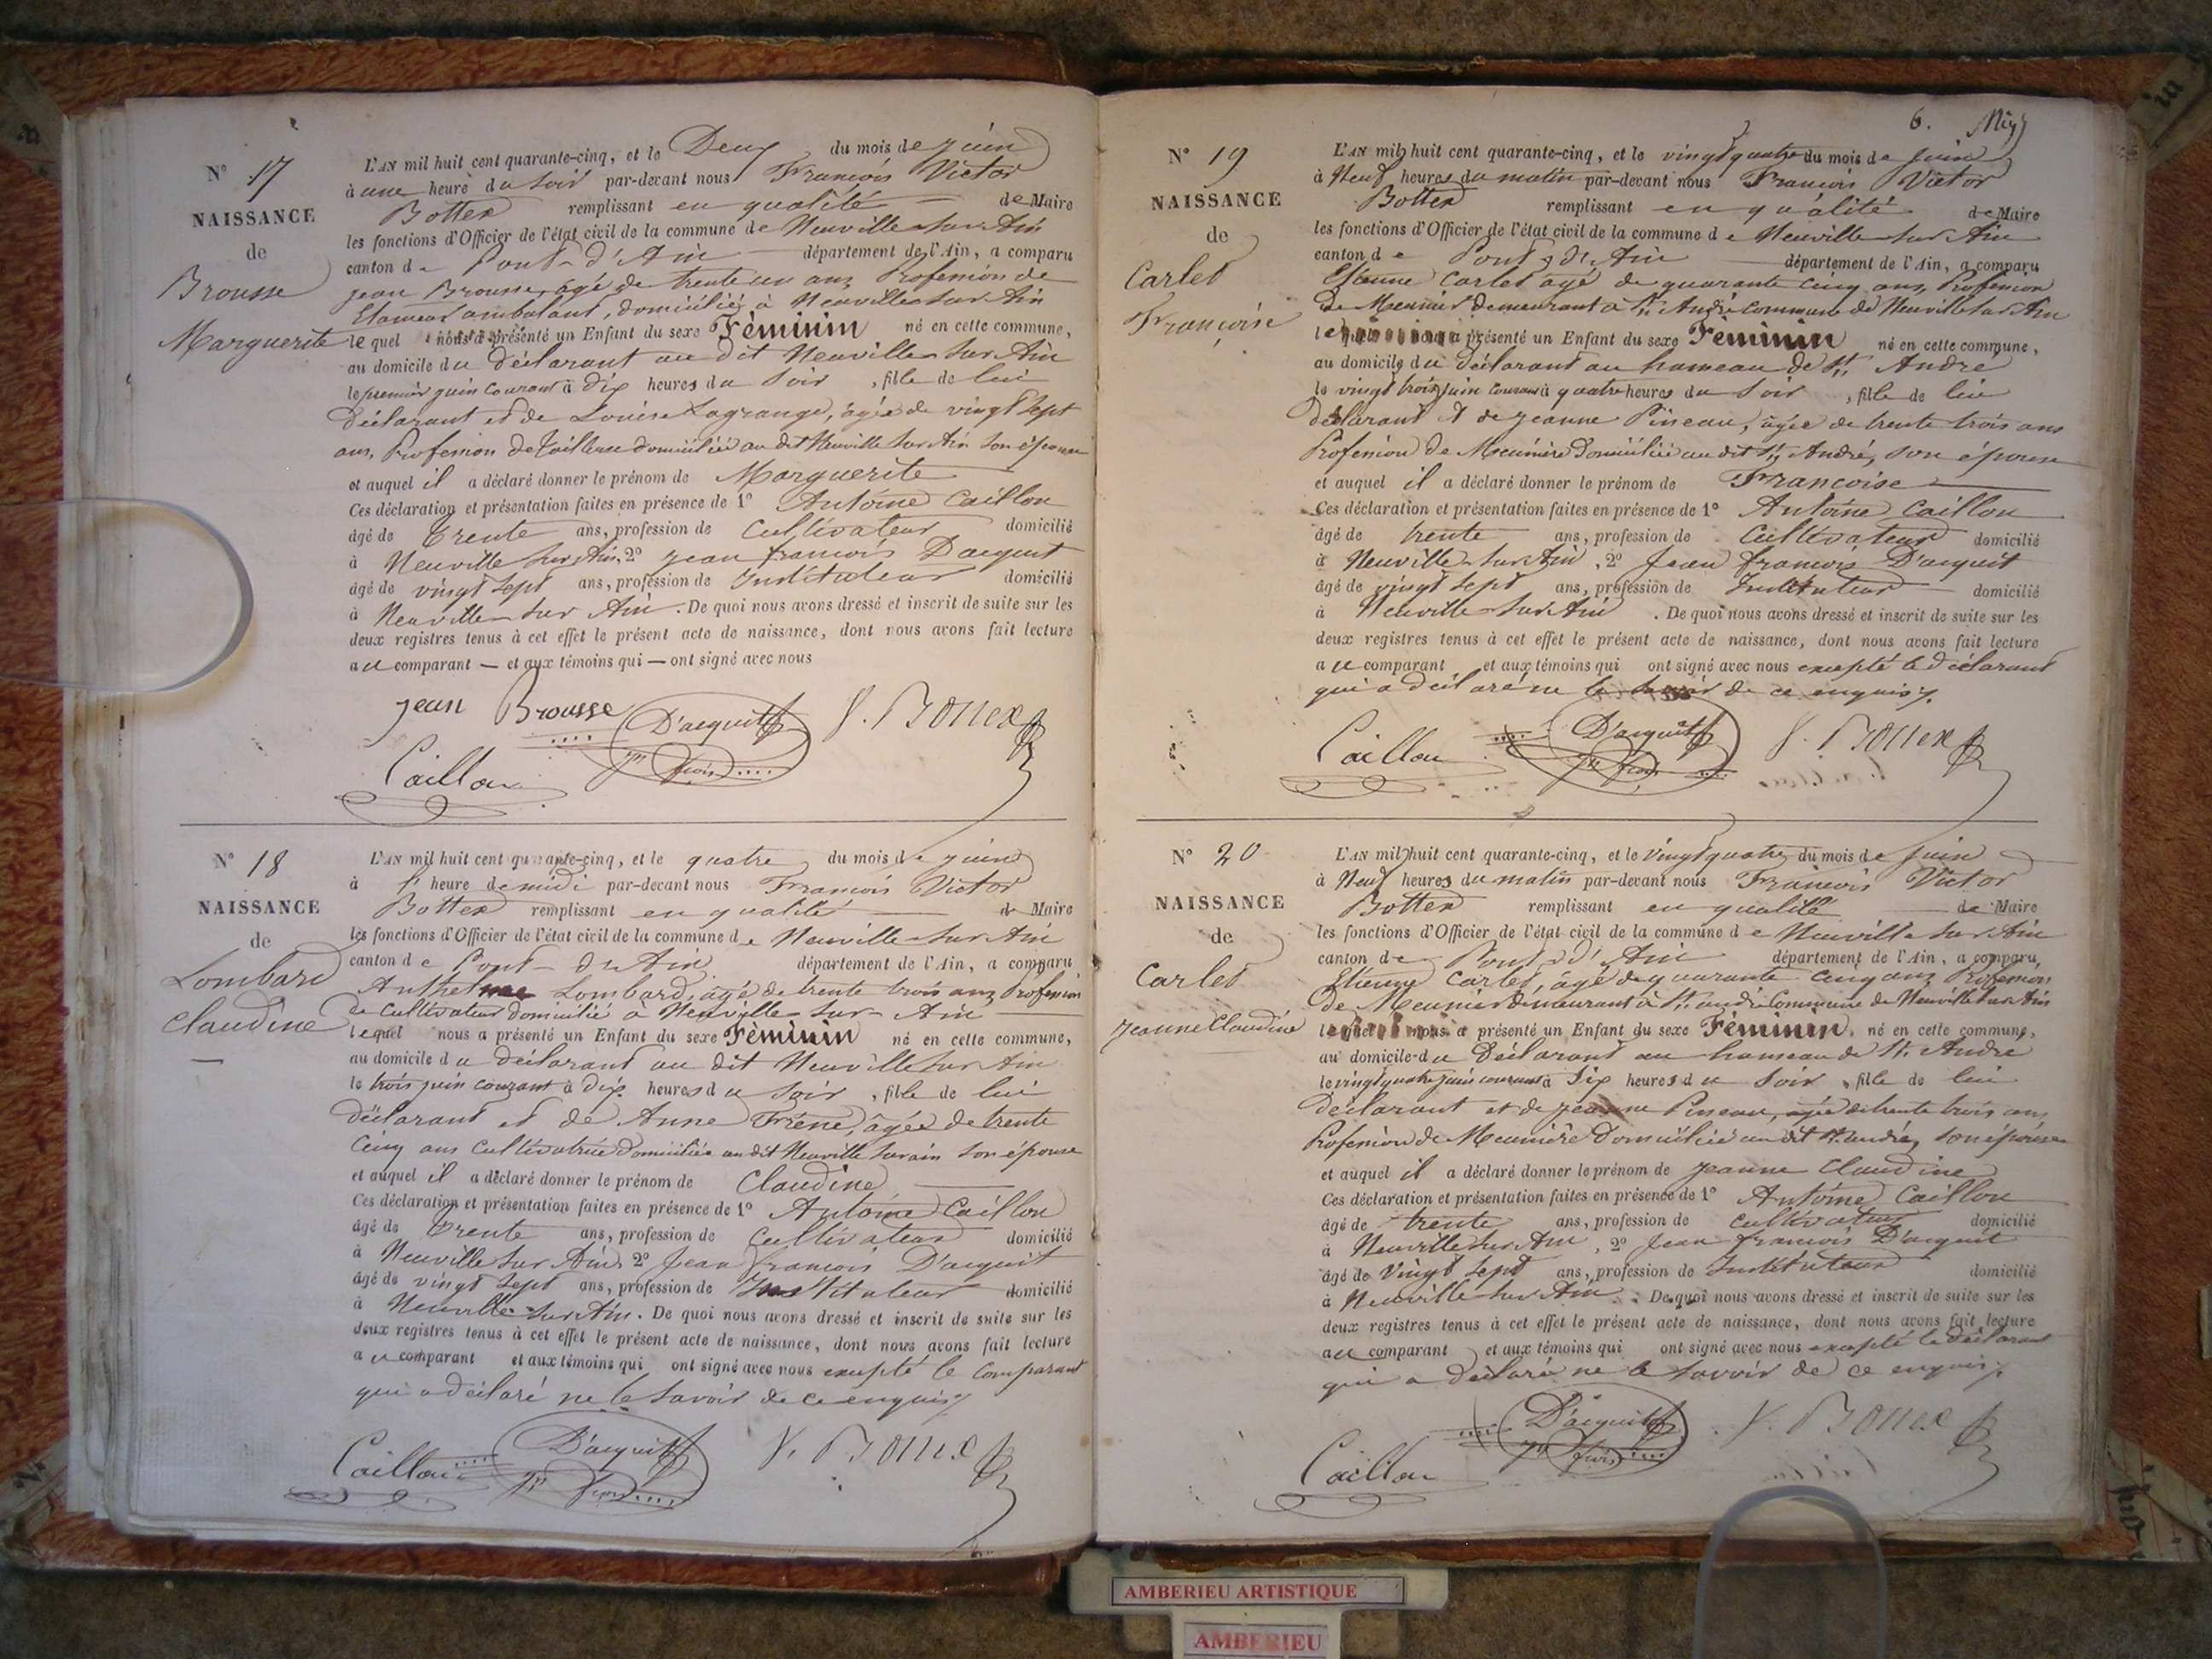 N° 17
NAISSANCE
de
Brousse
Marguerite
L'AN mil huit cent quarante-cinq, et le Deux du mois de juin
à une heure du soir par-devant nous François Victor
Bottex remplissant en qualité de Maire
les fonctions d'Officier de l'état civil de la commune de Neuville sur Ain
canton de Pont-d'Ain département de l'Ain, a comparu
jean Brousse, âgé de trente un ans, Profession de
Etameur ambulant, domicilié à Neuville sur Ain
lequel nous a présenté un Enfant du sexe Féminin né en cette commune,
au domicile du déclarant au dit Neuville sur Ain
le premier juin courant à dix heures du soir, fille de lui
Déclarant et de Louise Lagrange, âgée de vingt sept
ans, Profession de Tailleuse domiciliée au dit Neuville sur Ain son épouse
et auquel il a déclaré donner le prénom de Marguerite
Ces déclaration et présentation faites en présence de 1° Antoine Caillou
âgé de Trente ans, profession de Cultivateur domicilié
à Neuville sur Ain, 2° jean françois D'acquit
âgé de vingt sept ans, profession de Instituteur domicilié
à Neuville sur Ain. De quoi nous avons dressé et inscrit de suite sur les
deux registres tenus à cet effet le présent acte de naissance, dont nous avons fait lecture
au comparant — et aux témoins qui — ont signé avec nous
jean Brousse D'acquit V. Bottex
Jn fcois
Caillou
N° 18
NAISSANCE
de
Lombard
Claudine
L'AN mil huit cent quarante-cinq, et le quatre du mois de juin
à l' heure de midi par-devant nous François Victor
Bottex remplissant en qualité de Maire
les fonctions d'Officier de l'état civil de la commune de Neuville sur Ain
canton de Pont-d'Ain département de l'Ain, a comparu
Anthelme Lombard, âgé de trente trois ans, Profession
de Cultivateur domicilié à Neuville sur Ain
lequel nous a présenté un Enfant du sexe Féminin né en cette commune,
au domicile du déclarant au dit Neuville sur Ain
le trois juin courant à dix heures du soir, fille de lui
Déclarant et de Anne Frène, âgée de trente
Cinq ans Cultivatrice domiciliée au dit Neuville sur ain son épouse
et auquel il a déclaré donner le prénom de Claudine
Ces déclaration et présentation faites en présence de 1° Antoine Caillou
âgé de Trente ans, profession de Cultivateur domicilié
à Neuville sur Ain, 2° Jean françois D'acquit
âgé de vingt sept ans, profession de Instituteur domicilié
à Neuville sur Ain. De quoi nous avons dressé et inscrit de suite sur les
deux registres tenus à cet effet le présent acte de naissance, dont nous avons fait lecture
au comparant et aux témoins qui ont signé avec nous excepté le Comparant
qui a déclaré ne le savoir de ce enquis
Caillou D'acquit V. Bottex
Jn fcois
6.
N° 19
NAISSANCE
de
Carlet
Françoise
L'AN mil huit cent quarante-cinq, et le vingt quatre du mois de juin
à Neuf heures du matin par-devant nous François Victor
Bottex remplissant en qualité de Maire
les fonctions d'Officier de l'état civil de la commune de Neuville sur Ain
canton de Pont d'Ain département de l'Ain, a comparu
Etienne Carlet âgé de quarante cinq ans, Profession
de Meunier demeurant à St. André Commune de Neuville sur Ain
lequel nous a présenté un Enfant du sexe Féminin né en cette commune,
au domicile du déclarant au hameau de St. André
le vingt trois juin courant à quatre heures du soir, fille de lui
déclarant et de jeanne Pineau, âgée de trente trois ans
Profession de Meunière domiciliée au dit St. André, son épouse
et auquel il a déclaré donner le prénom de Françoise
Ces déclaration et présentation faites en présence de 1° Antoine Caillou
âgé de trente ans, profession de Cultivateur domicilié
à Neuville sur Ain, 2° Jean françois D'acquit
âgé de vingt sept ans, profession de Instituteur domicilié
à Neuville sur Ain. De quoi nous avons dressé et inscrit de suite sur les
deux registres tenus à cet effet le présent acte de naissance, dont nous avons fait lecture
au comparant et aux témoins qui ont signé avec nous excepté le déclarant
qui a déclaré ne le savoir de ce enquis
Caillou D'acquit V. Bottex
Jn fcois
N° 20
NAISSANCE
de
Carlet
Jeanne Claudine
L'AN mil huit cent quarante-cinq, et le vingt quatre du mois de juin
à Neuf heures du matin par-devant nous François Victor
Bottex remplissant en qualité de Maire
les fonctions d'Officier de l'état civil de la commune de Neuville sur Ain
canton de Pont d'Ain département de l'Ain, a comparu
Etienne Carlet, âgé de quarante cinq ans, Profession
de Meunier demeurant à St. andré Commune de Neuville sur Ain
lequel nous a présenté un Enfant du sexe Féminin, né en cette commune,
au domicile du Déclarant au hameau de St. André
le vingt quatre juin courant à Six heures du soir, fille de lui
Déclarant et de jeanne Pineau, âgée de trente trois ans
Profession de Meunière Domiciliée au dit St. andré, son épouse
et auquel il a déclaré donner le prénom de jeanne Claudine
Ces déclaration et présentation faites en présence de 1° Antoine Caillou
âgé de trente ans, profession de Cultivateur domicilié
à Neuville sur Ain, 2° Jean françois D'acquit
âgé de Vingt sept ans, profession de Instituteur domicilié
à Neuville sur Ain. De quoi nous avons dressé et inscrit de suite sur les
deux registres tenus à cet effet le présent acte de naissance, dont nous avons fait lecture
au comparant et aux témoins qui ont signé avec nous excepté le déclarant
qui a déclaré ne le savoir de ce enquis
Caillou D'acquit V. Bottex
Jn fcois
AMBERIEU ARTISTIQUE
AMBERIEU